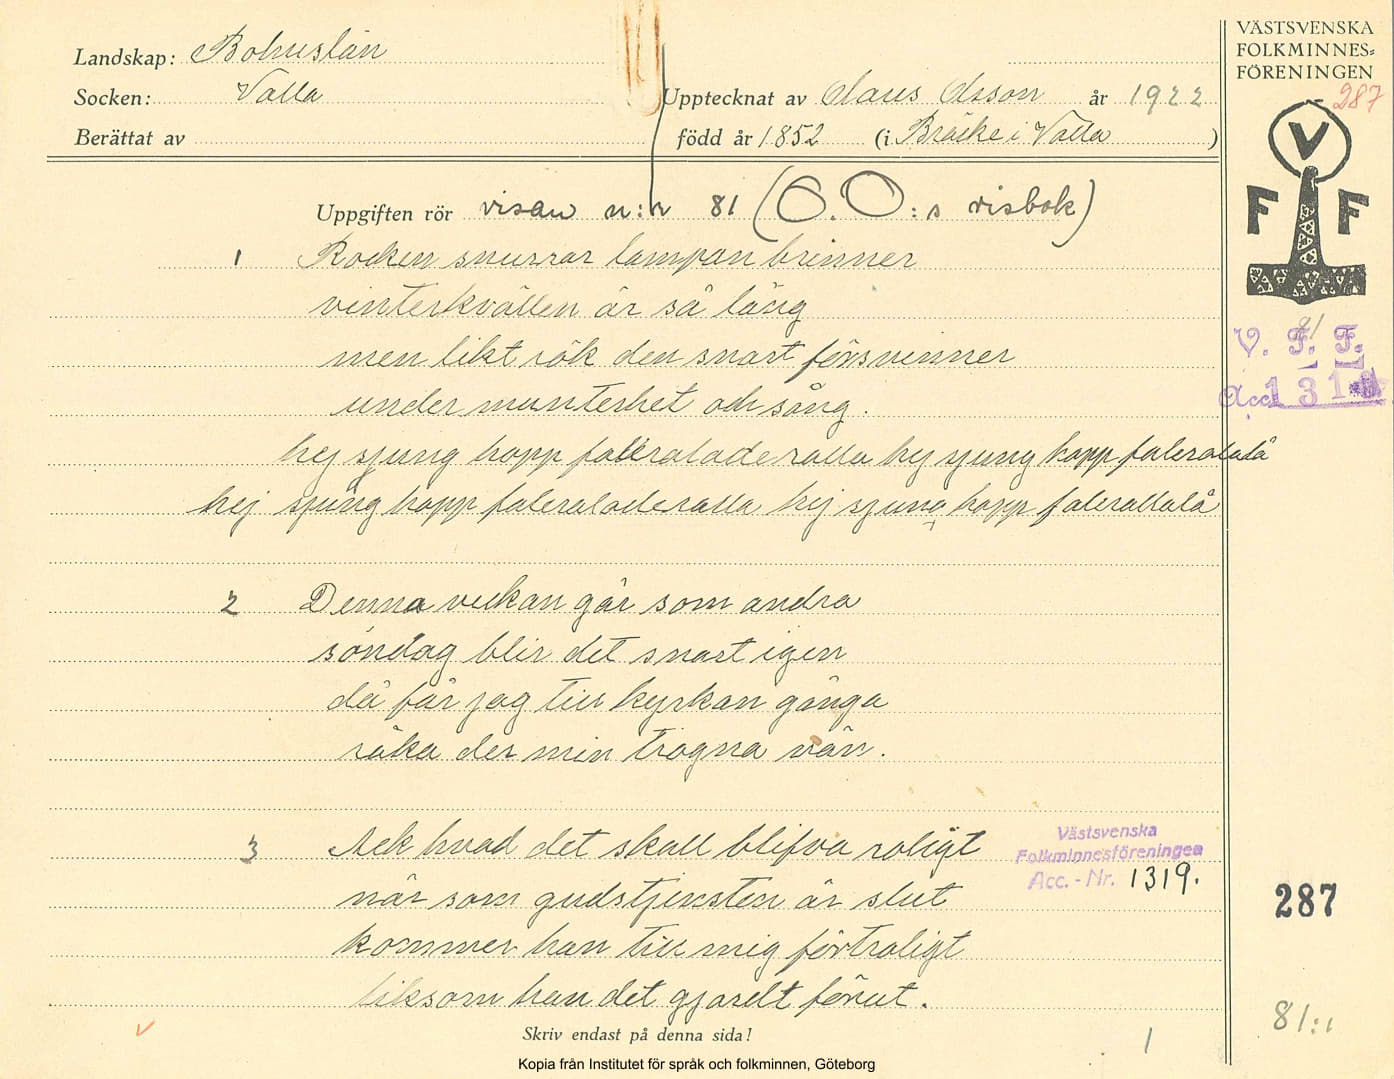 Landskap: Bohuslän
Socken: Valla
Berättat av
Upptecknat av Claus Olsson år 1922
född år 1852 (i Bräcke i Valla )
VÄSTSVENSKA
FOLKMINNES=
FÖRENINGEN
287
V
F F
Uppgiften rör visan n:r 81 (C. O:s visbok)
1 Rocken snurrar lampan brinner
vinterkvällen är så lång
men likt rök den snart försvinner
under munterhet och sång.
hej sjung hopp faleraladeralla hej sjung hopp faleralalå
hej sjung hopp faleraladeralla hej sjung hopp falerallalå
2 Denna veckan går som andra
söndag blir det snart igen
då får jag till kyrkan gånga
råka der min trogna vän.
3 Ack hvad det skall blifva roligt
när som gudstjensten är slut
kommer han till mig förtroligt
liksom han det gjordt förut.
81
V. F. F.
Acc. 131
Västsvenska
Folkminnesföreningen
Acc. - Nr. 1319.
287
81:1
1
Skriv endast på denna sida!
Kopia från Institutet för språk och folkminnen, Göteborg